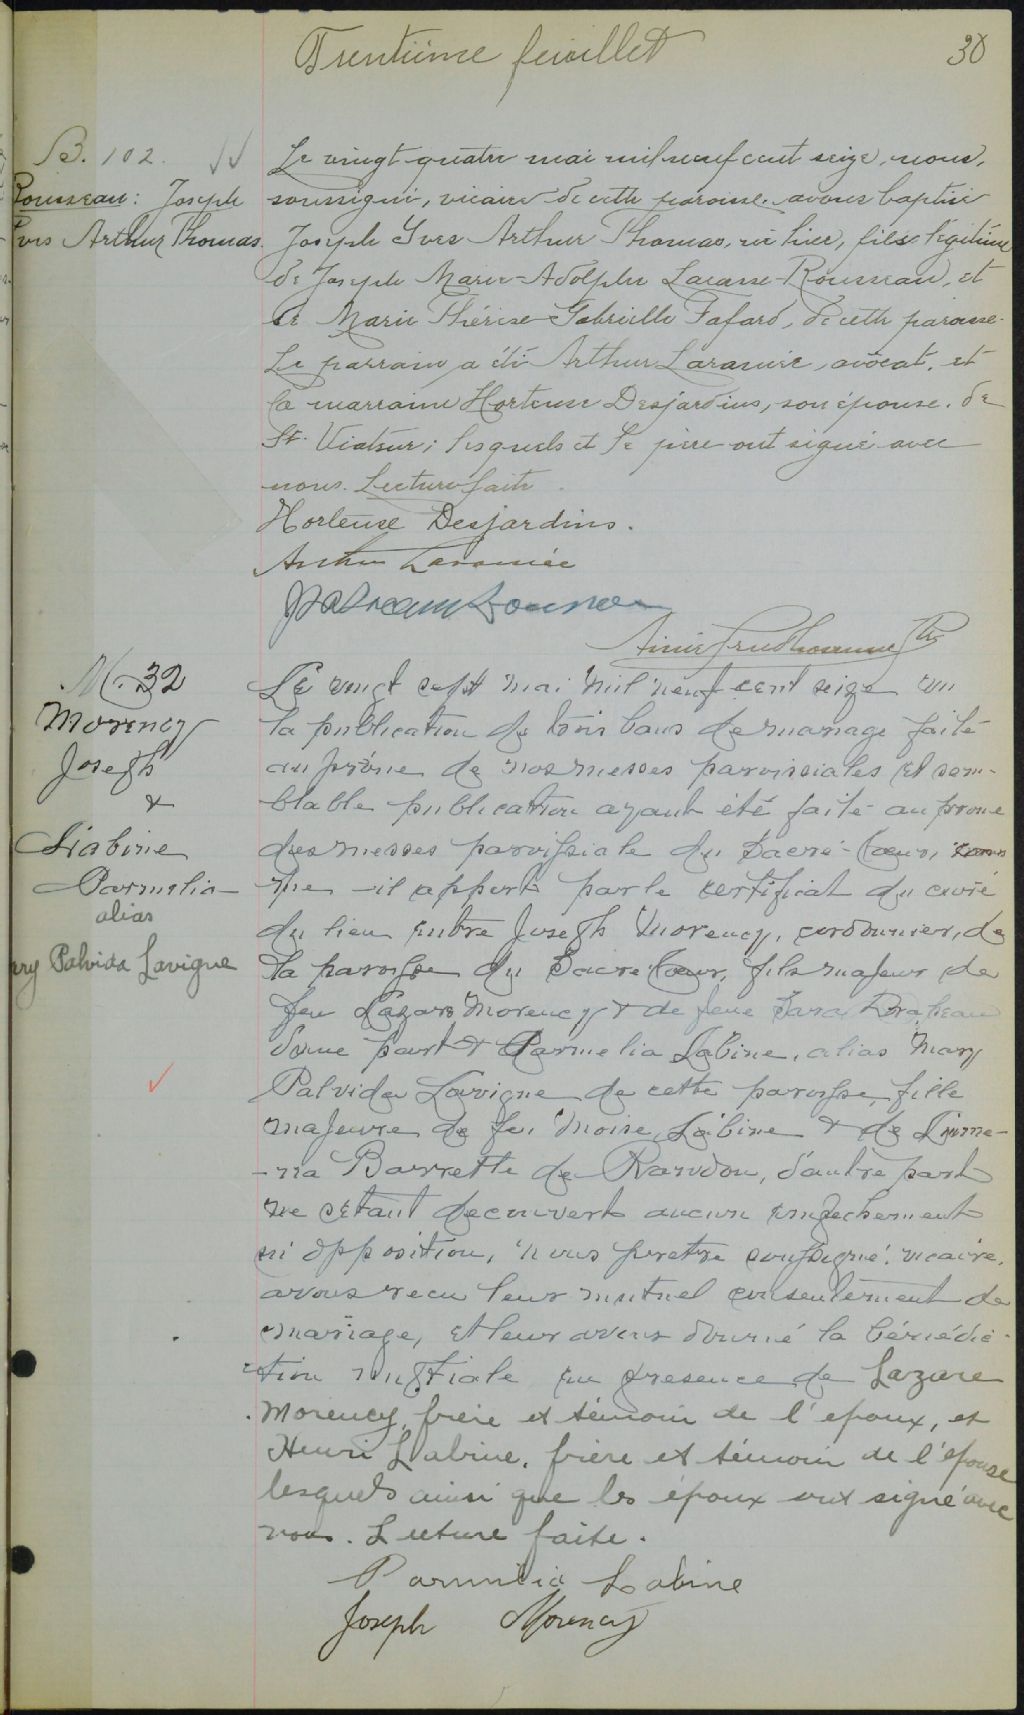 Trentième feuillet
30
B. 102.
Rousseau: Joseph
Yves Arthur Thomas.
Le vingt-quatre mai mil neuf cent seize, nous,
soussigné, vicaire de cette paroisse, avons baptisé
Joseph Yves Arthur Thomas, né hier, fils légitime
de Joseph Marie-Adolphe Lacasse-Rousseau, et
de Marie Thérèse Gabrielle Fafard, de cette paroisse.
Le parrain a été Arthur Laramée, avocat, et
la marraine Hortense Desjardins, son épouse, de
St. Viateur; lesquels et le père ont signé avec
nous. Lecture faite.
Hortense Desjardins.
Arthur Laramée
Aimé Prudhomme Ptre
M. 32
Morency
Joseph
&
Labine
Parmelia
alias
Mary Palvida Lavigne
Le vingt sept mai mil neuf cent seize vu
la publication de trois bans de mariage faite
au prône de nos messes paroissiales et sem-
blable publication ayant été faite au prone
des messes paroissiale du Sacré-Coeur,
me il appert par le certificat du curé
du lieu entre Joseph Morency, cordonnier, de
la paroisse du Sacré Coeur, fils majeur de
feu Lazare Morency & de feue Sara Drapeau
d'une part & Parmelia Labine, alias Mary
Palvida Lavigne de cette paroisse, fille
majeure de feu Moise Labine & de
-na Barrette de Rawdon, d'autre part
ne setant decouvert aucun empechement
ni opposition, nous pretre soussigné vicaire,
avons recu leur mutuel consentement de
mariage, et leur avons donné la bénédic-
-tion nuptiale en presence de Lazare
Morency, frère et témoin de l'epoux, et
Henri Labine, frère et témoin de l'épouse
lesquels ainsi que les époux ont signé avec
nous. Lecture faite.
Parmelia Labine
Joseph Morency